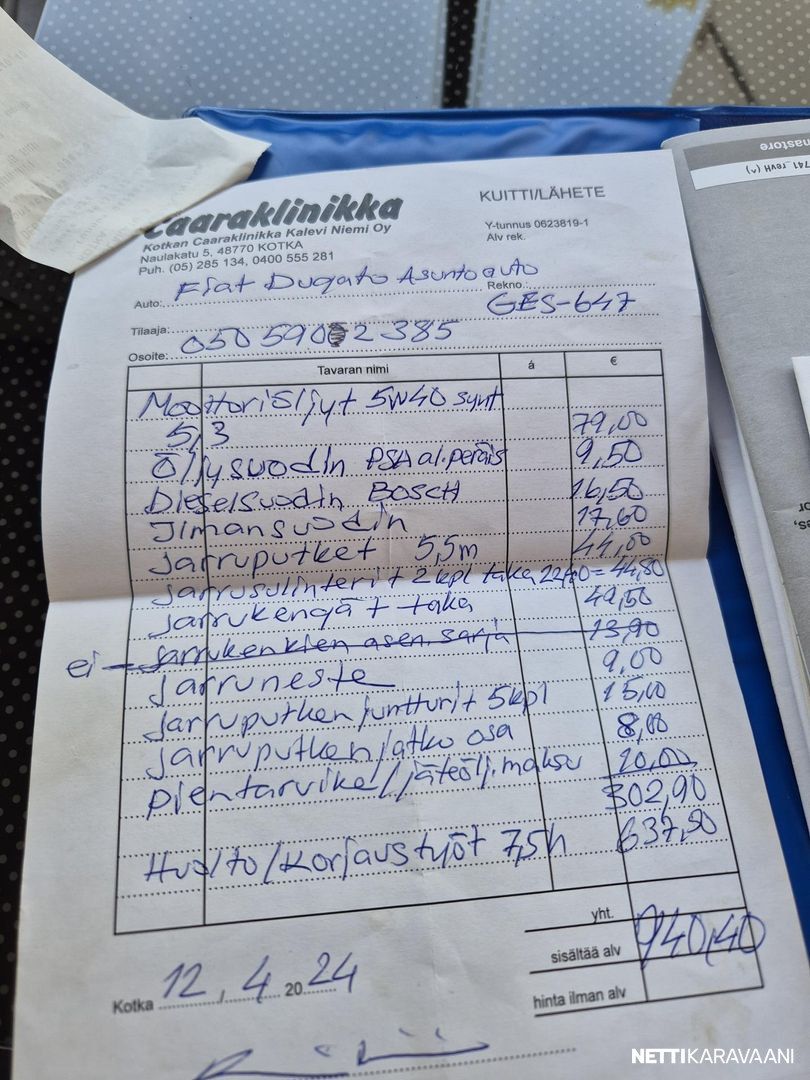 Caaraklinikka
KUITTI/LÄHETE
Kotkan Caaraklinikka Kalevi Niemi Oy
Naulakatu 5, 48770 KOTKA
Puh. (05) 285 134, 0400 555 281
Y-tunnus 0623819-1
Alv rek.
Auto: Fiat Dugato Asuntoauto
Rekno.: GES-647
Tilaaja:
Osoite: 050 590 2385
Tavaran nimi á €
Moottoriöljyt 5W40 synt
5,3 79,00
Öljysuodin PSA al.peräis 9,50
Dieselsuodin BOSCH 16,50
Ilmansuodin 17,60
Jarruputket 5,5m 44,00
Jarrusylinterit 2kpl taka 22,40 = 44,80
Jarrukengät taka 49,50
ei - Jarrukenkien asen.sarja 13,90
Jarruneste 9,00
Jarruputken juntturit 5kpl 15,00
Jarruputken jatko osa 8,00
Pientarvike/jäteölj.maksu 10,00
302,90
Huolto/Korjaustyöt 7,5h 637,50
yht.
sisältää alv 940,40
hinta ilman alv
Kotka 12,4 2024
nastore
741_revH (^)
NETTIKARAVAANI